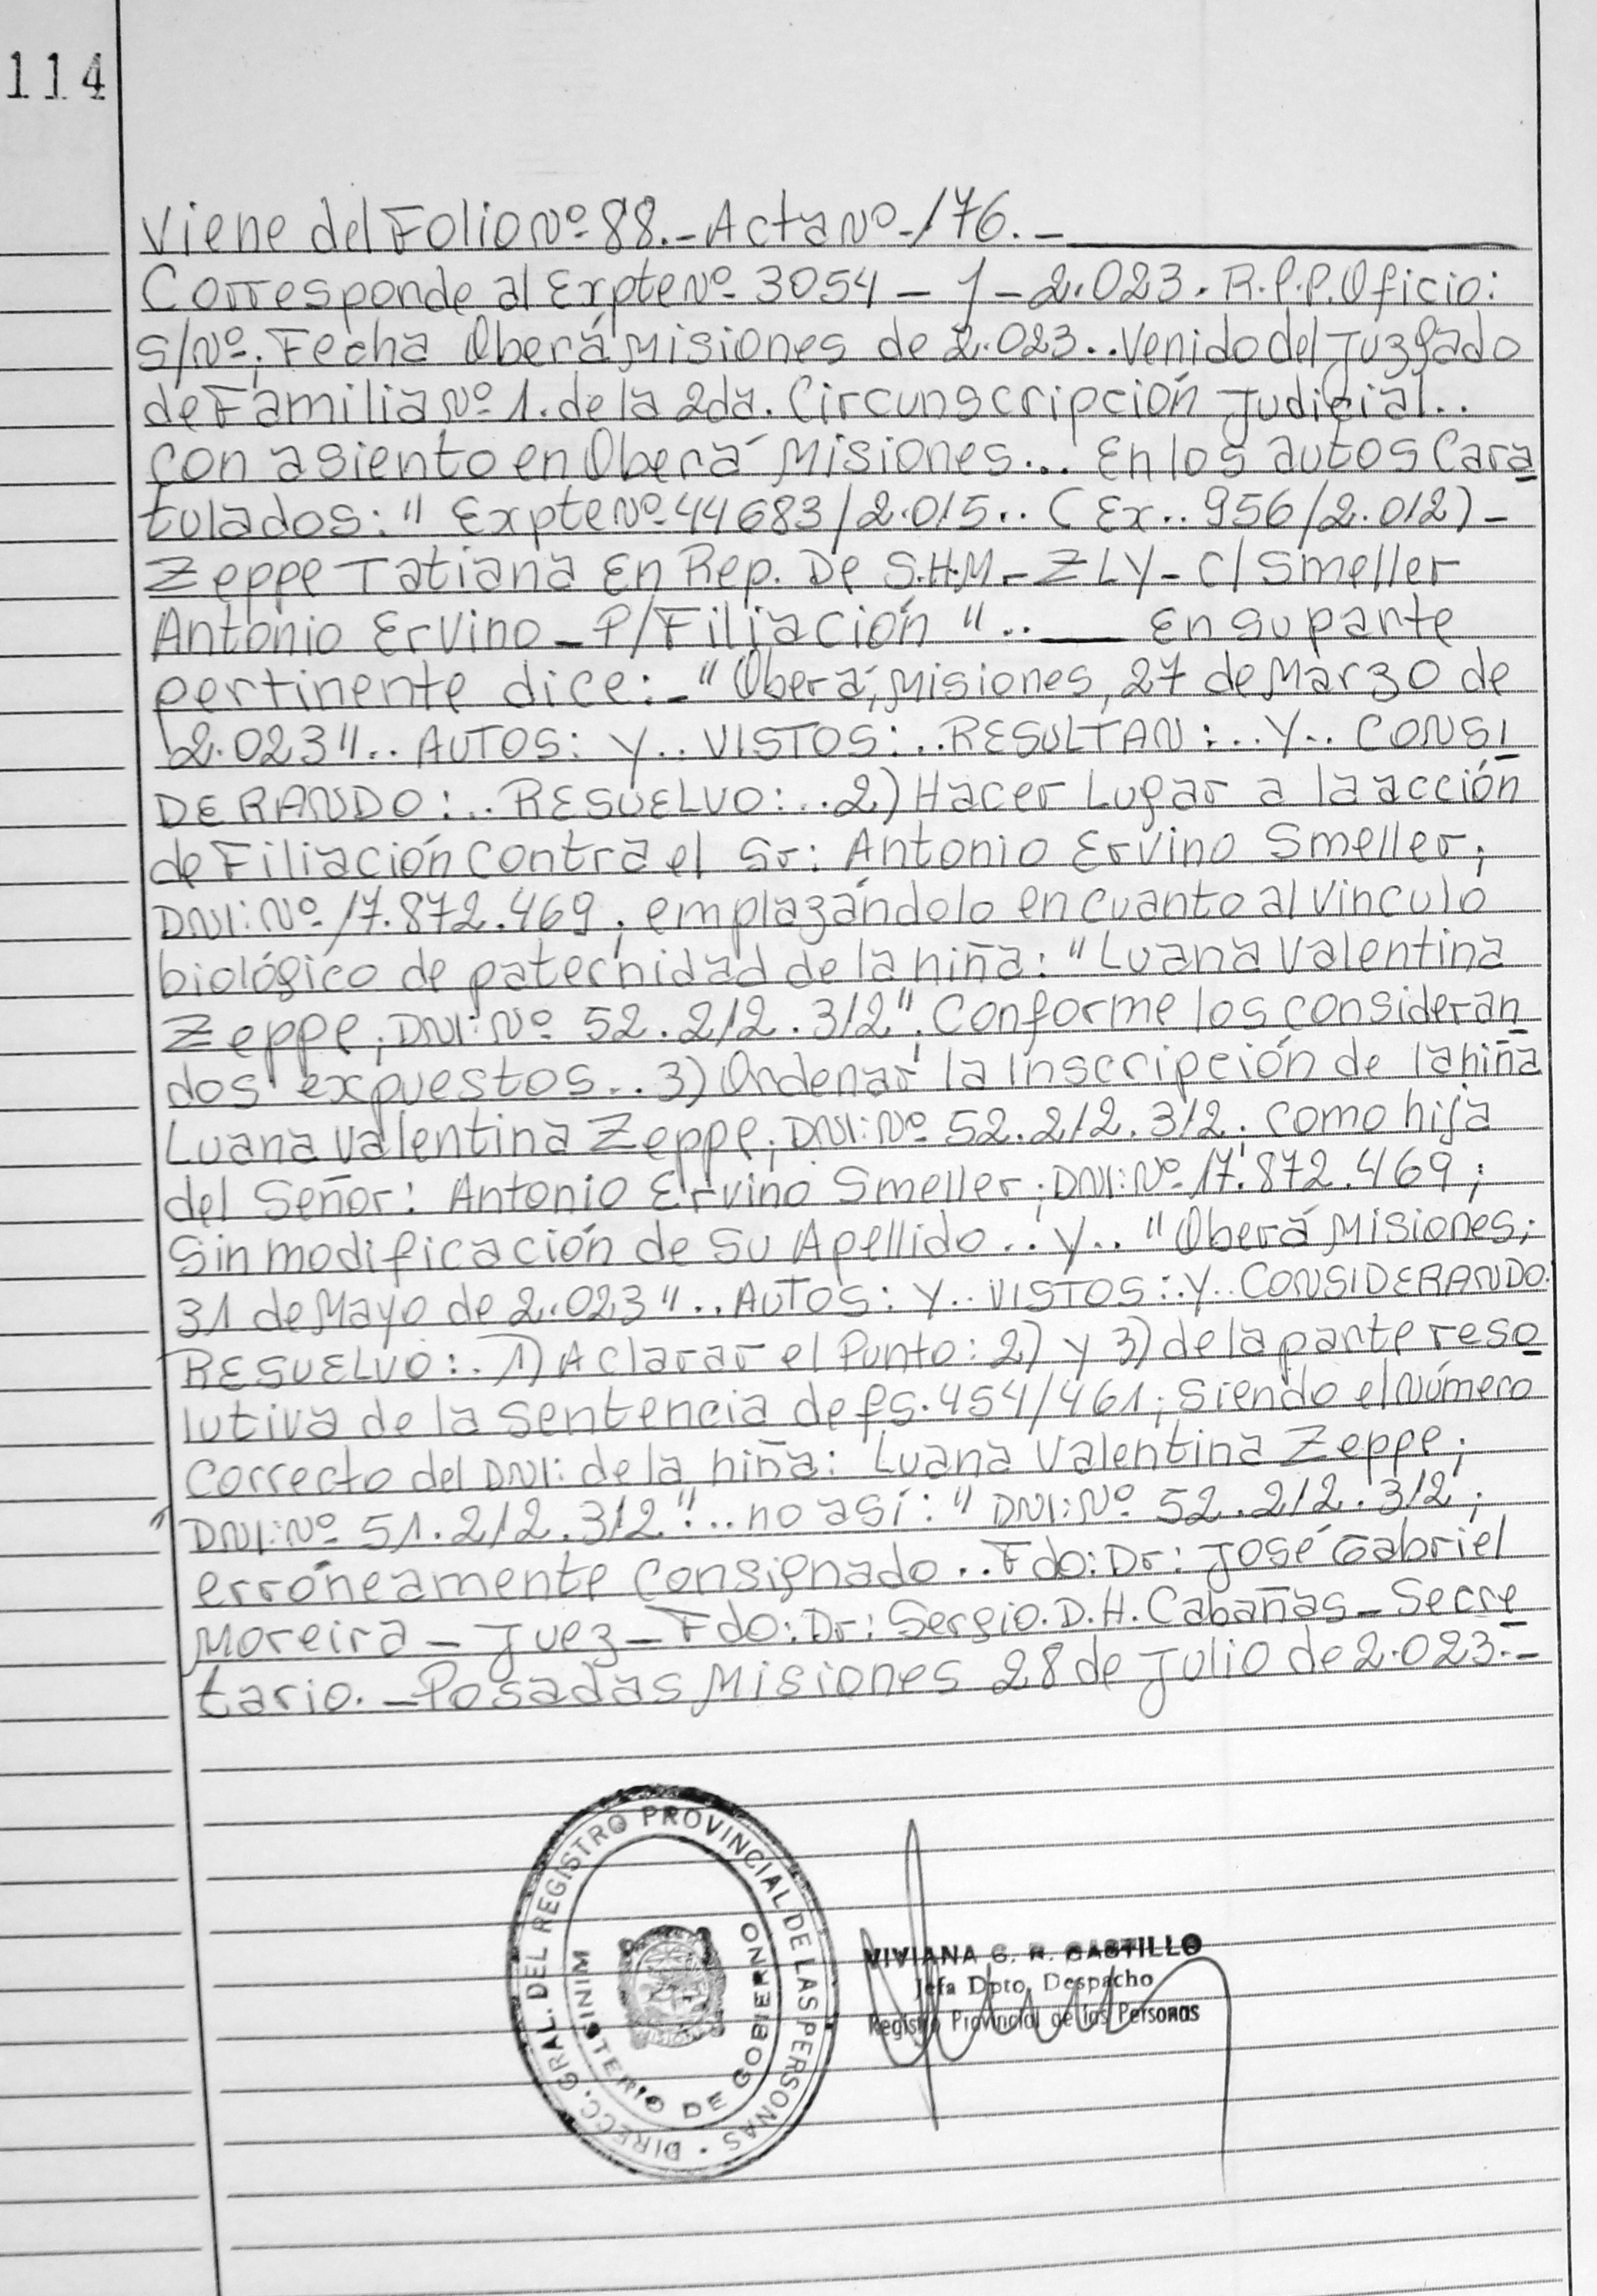 114
Viene del Folio Nº 88.- Acta Nº -176.-
Corresponde al Expte Nº 3054 - J - 2.023. R.P.P. Oficio:
S/Nº; Fecha Oberá Misiones de 2.023.. Venido del Juzgado
de Familia Nº 1. de la 2da. Circunscripción Judicial..
con asiento en Oberá Misiones... En los autos Cara
tulados: " Expte Nº 44683/2.015.. (Ex.. 956/2.012)-
Zeppe Tatiana En Rep. De S.H.M - ZLY - C/ Smeller
Antonio Ervino - P/Filiación ".. — En su parte
pertinente dice:- "Oberá; Misiones, 27 de Marzo de
2.023".. AUTOS: y.. VISTOS:.. RESULTAN:.. Y.. CONSI
DERANDO:.. RESUELVO:.. 2) Hacer Lugar a la acción
de Filiación contra el Sr: Antonio Ervino Smeller;
DNI: Nº 17.872.469; emplazándolo en cuanto al vinculo
biológico de paternidad de la niña: "Luana Valentina
Zeppe; DNI: Nº 52.212.312". Conforme los consideran
dos expuestos.. 3) Ordenar la inscripción de la niña
Luana Valentina Zeppe; DNI: Nº 52.212.312; como hija
del Señor: Antonio Ervino Smeller; DNI: Nº 17.872.469;
Sin modificación de su Apellido.. y.. "Oberá Misiones;
31 de Mayo de 2.023".. AUTOS: Y.. VISTOS:. Y.. CONSIDERANDO.
RESUELVO:. 1) Aclarar el Punto: 2) y 3) de la parte reso
lutiva de la sentencia de fs. 454/461; siendo el Número
Correcto del DNI: de la niña: Luana Valentina Zeppe;
DNI: Nº 51.212.312".. no así: " DNI: Nº 52.212.312;
erróneamente Consignado.. Fdo: Dr: José Gabriel
Moreira - Juez - Fdo: Dr: Sergio. D. H. Cabañas - Secre
tario.- Posadas Misiones 28 de Julio de 2.023.-
DIRECC. GRAL. DEL REGISTRO PROVINCIAL DE LAS PERSONAS
MINISTERIO DE GOBIERNO
VIVIANA G. R. CASTILLO
Jefa Dpto. Despacho
Registro Provincial de las Personas